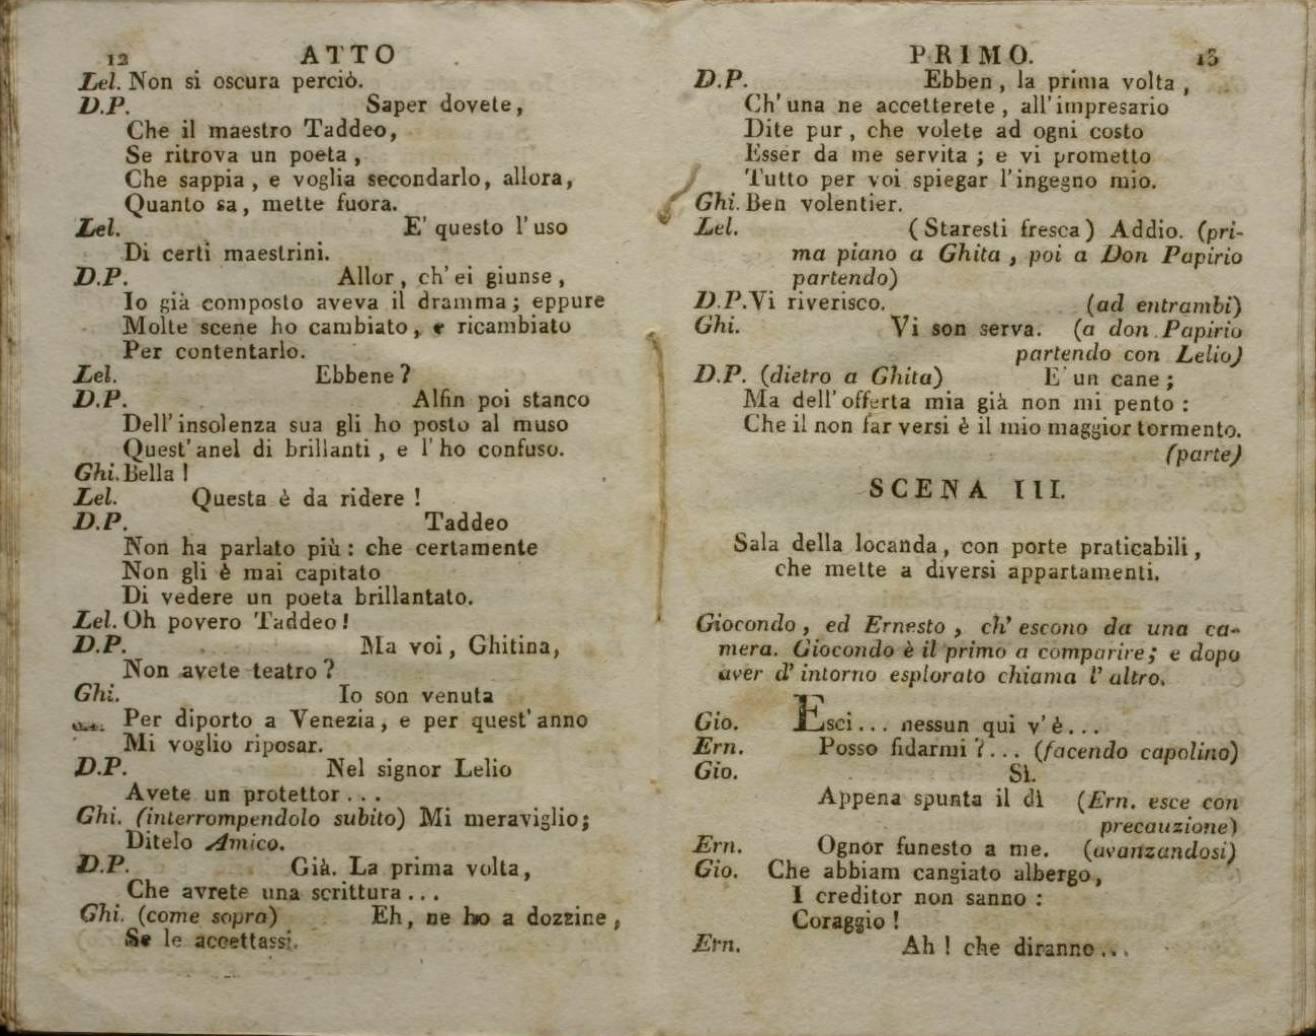 12 ATTO
Lel. Non si oscura perciò.
D.P. Saper dovete,
Che il maestro Taddeo,
Se ritrova un poeta,
Che sappia, e voglia secondarlo, allora,
Quanto sa, mette fuora.
Lel. E' questo l'uso
Di certi maestrini.
D.P. Allor, ch'ei giunse,
Io già composto aveva il dramma; eppure
Molte scene ho cambiato, e ricambiato
Per contentarlo.
Lel. Ebbene?
D.P. Alfin poi stanco
Dell'insolenza sua gli ho posto al muso
Quest'anel di brillanti, e l'ho confuso.
Ghi. Bella!
Lel. Questa è da ridere!
D.P. Taddeo
Non ha parlato più: che certamente
Non gli è mai capitato
Di vedere un poeta brillantato.
Lel. Oh povero Taddeo!
D.P. Ma voi, Ghitina,
Non avete teatro?
Ghi. Io son venuta
Per diporto a Venezia, e per quest'anno
Mi voglio riposar.
D.P. Nel signor Lelio
Avete un protettor...
Ghi. (interrompendolo subito) Mi meraviglio;
Ditelo Amico.
D.P. Già. La prima volta,
Che avrete una scrittura...
Ghi. (come sopra) Eh, ne ho a dozzine,
Se le accettassi.
PRIMO. 13
D.P. Ebben, la prima volta,
Ch'una ne accetterete, all'impresario
Dite pur, che volete ad ogni costo
Esser da me servita; e vi prometto
Tutto per voi spiegar l'ingegno mio.
Ghi. Ben volentier.
Lel. (Staresti fresca) Addio. (pri-
ma piano a Ghita, poi a Don Papirio
partendo)
D.P. Vi riverisco. (ad entrambi)
Ghi. Vi son serva. (a don Papirio
partendo con Lelio)
D.P. (dietro a Ghita) E' un cane;
Ma dell'offerta mia già non mi pento:
Che il non far versi è il mio maggior tormento.
(parte)
SCENA III.
Sala della locanda, con porte praticabili,
che mette a diversi appartamenti.
Giocondo, ed Ernesto, ch'escono da una ca-
mera. Giocondo è il primo a comparire; e dopo
aver d'intorno esplorato chiama l'altro.
Gio. Esci... nessun qui v'è...
Ern. Posso fidarmi?... (facendo capolino)
Gio. Sì.
Appena spunta il dì (Ern. esce con
precauzione)
Ern. Ognor funesto a me. (avanzandosi)
Gio. Che abbiam cangiato albergo,
I creditor non sanno:
Coraggio!
Ern. Ah! che diranno...